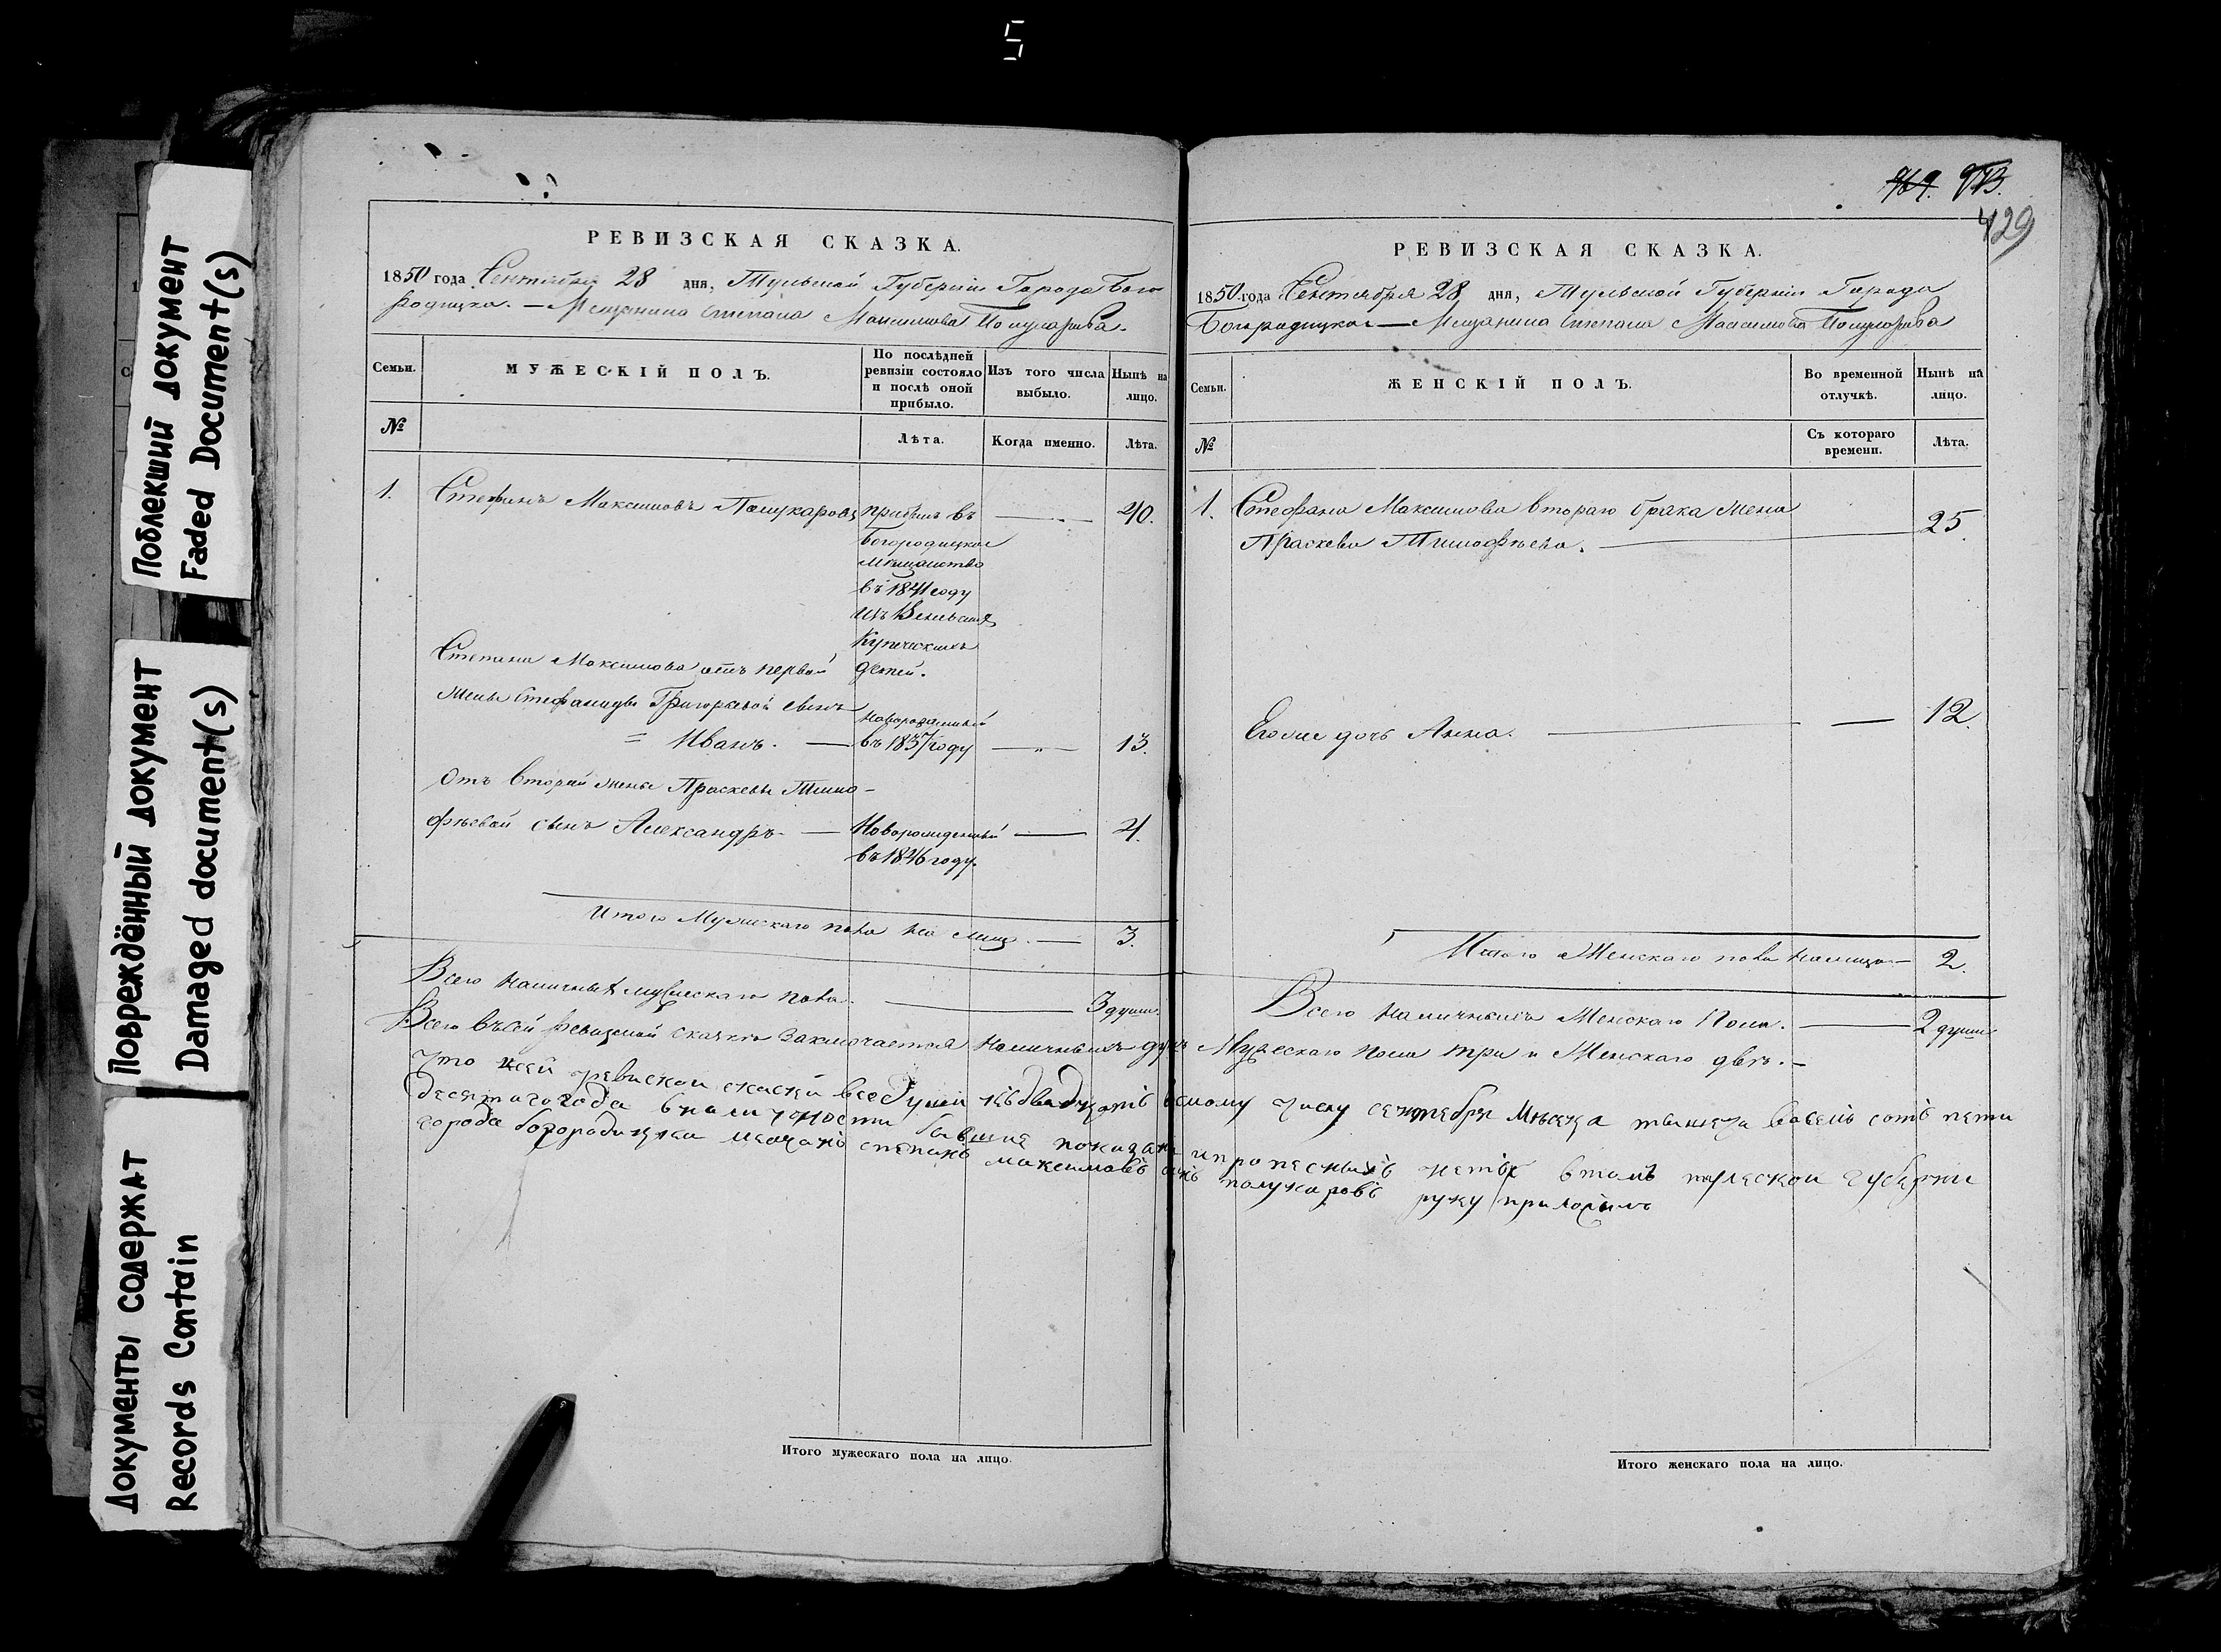 5
Поблекший документ
Faded Document(s)
Повреждённый документ
Damaged document(s)
Документы содержат
Records Contain
РЕВИЗСКАЯ СКАЗКА.
1850 года Сентября 28 дня, Тульской Губерніи Города Бого
родицка. — Мещанина Степана Максимова Полукарова.
Семьи.
МУЖЕСКІЙ ПОЛЪ.
По послѣдней
ревизіи состояло
и послѣ оной
прибыло.
Изъ того числа
выбыло.
Нынѣ на
лицо.
№
Лѣта.
Когда именно.
Лѣта.
1. Стефанъ Максимовъ Полукаровъ прибылъ въ — 40.
Богородицкое
мѣщанство
въ 1841 году
изъ Веневскихъ
Купеческихъ
дѣтей.
Степана Максимова отъ первой
жены Стефаниды Григорьевой сынъ
= Иванъ. — Новорожденный
въ 1837 году — 13.
Отъ второй жены Прасковьи Тимо-
фѣевой сынъ Александръ — Новорожденный — 4.
въ 1846 году.
Итого Мужескаго пола на лицо. — 3.
Всего наличныхъ мужескаго пола. — 3 души.
969. 973.
429
РЕВИЗСКАЯ СКАЗКА.
1850 года Сентября 28 дня, Тульской Губерніи Города
Богородицка — Мещанина Степана Максимова Полукарова
Семьи.
ЖЕНСКІЙ ПОЛЪ.
Во временной
отлучкѣ.
Нынѣ на
лицо.
№
Съ котораго
времени.
Лѣта.
1. Стефана Максимова втораго брака жена
Праскева Тимофѣева. — 25.
Его же дочь Анна. — 12.
Итого Женскаго пола на лицо — 2.
Всего наличныхъ Женскаго Пола. — 2 души
Всего въ сей ревизской сказкѣ заключается наличныхъ душъ Мужескаго пола три и Женскаго двѣ. —
Что всей ревиской скаски все души къ двадцать осмому числу сентебря мѣсеца тысеча восемь сотъ пети
десятого года вналичности бывшие показаны и прописныхъ нетъ втомъ тулеской губерни
города богородицка мещанъ степанъ максимовъ сынъ полукаровъ руку приложилъ
Итого мужескаго пола на лицо.
Итого женскаго пола на лицо.